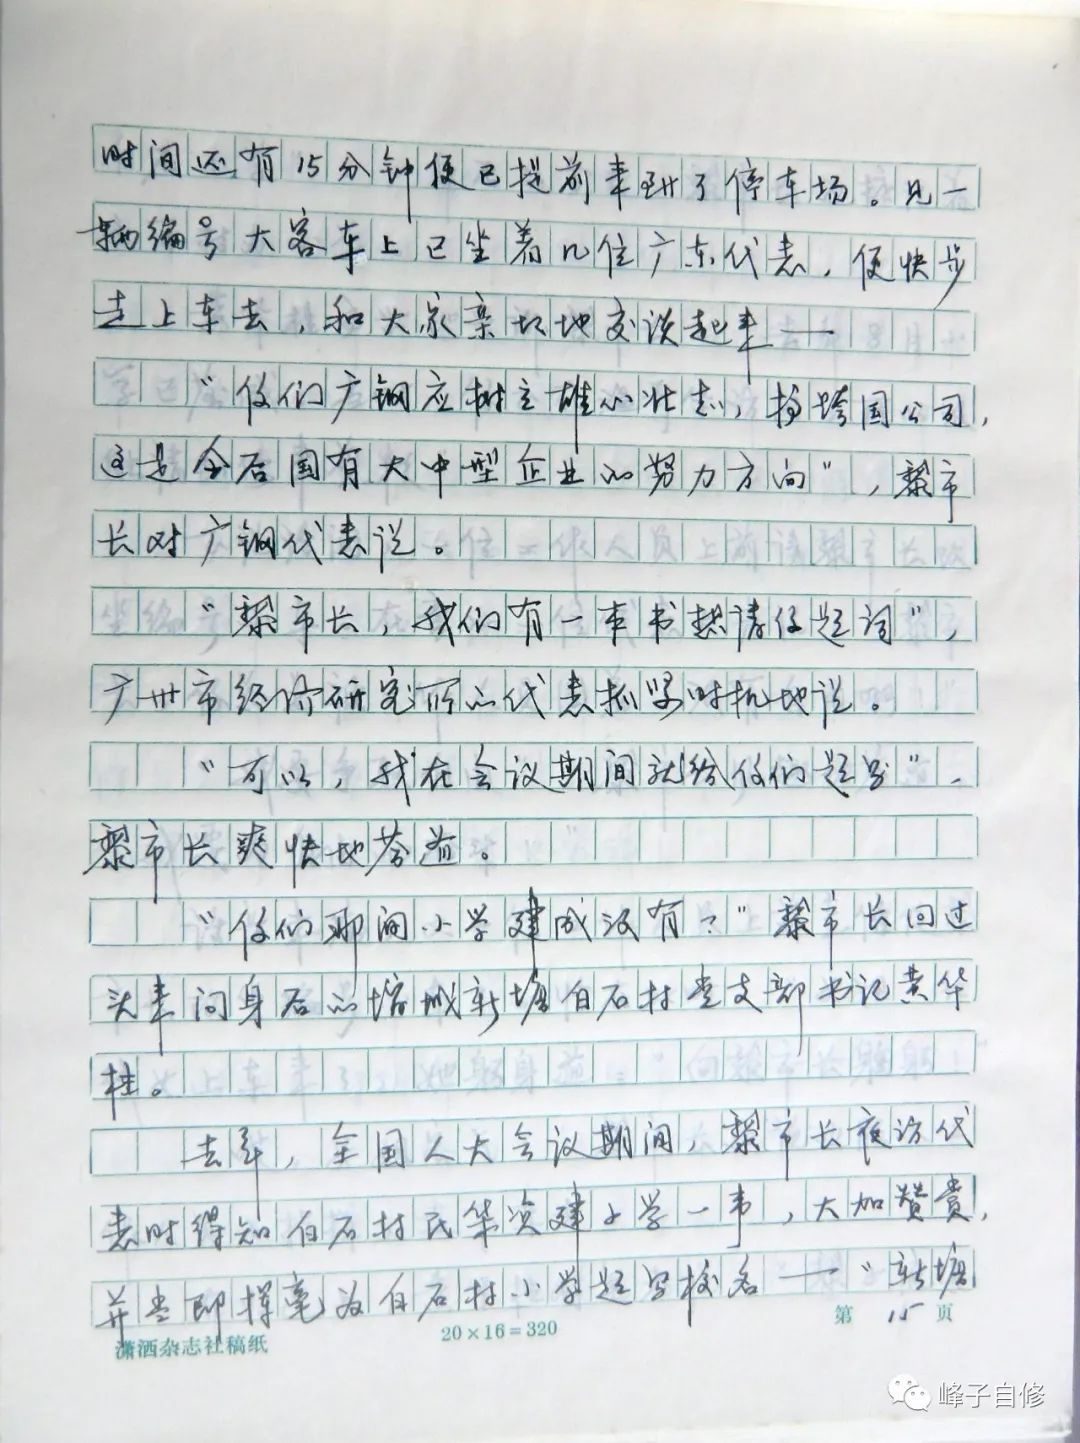 时间还有15分钟便已提前来到了停车场。见一
辆编号大客车上已坐着几位广东代表，便快步
走上车去，和大家亲切地交谈起来——
“你们广钢应树立雄心壮志，搞跨国公司，
这是今后国有大中型企业的努力方向”，黎市
长对广钢代表说。
“黎市长，我们有一本书想请你题词”，
广州市经济研究所的代表抓紧时机地说。
“可以，我在会议期间就给你们题写”，
黎市长爽快地答道。
“你们那间小学建成没有？”黎市长回过
头来问身后的增城新塘白石村党支部书记黄华
桂。
去年，全国人大会议期间，黎市长夜访代
表时得知白石村民集资建小学一事，大加赞赏，
并当即挥毫为白石村小学题写校名——“新塘
潇洒杂志社稿纸
20×16=320
第15页
峰子自修